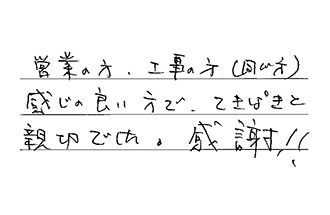 営業の方、工事の方(同じ方)
感じの良い方で、てきぱきと
親切でした。感謝!!